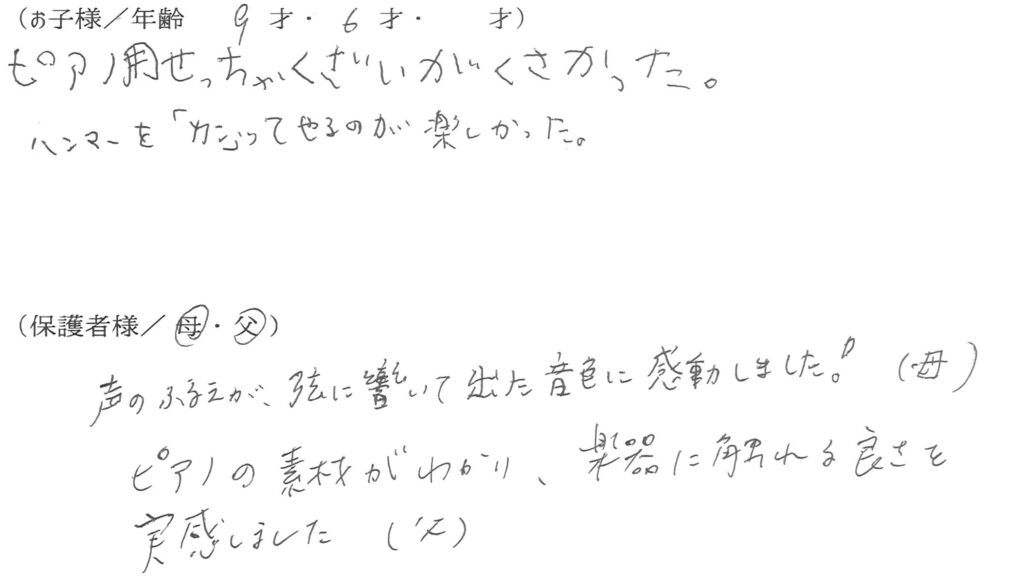 (お子様／年齢 9才・6才・ 才)
ピアノ用せっちゃくざいがくさかった。
ハンマーを「カンってやるのが楽しかった。
(保護者様／母・父)
声のふるえが、弦に響いて出た音色に感動しました。 (母)
ピアノの素材がわかり、楽器に触れる良さを
実感しました (父)